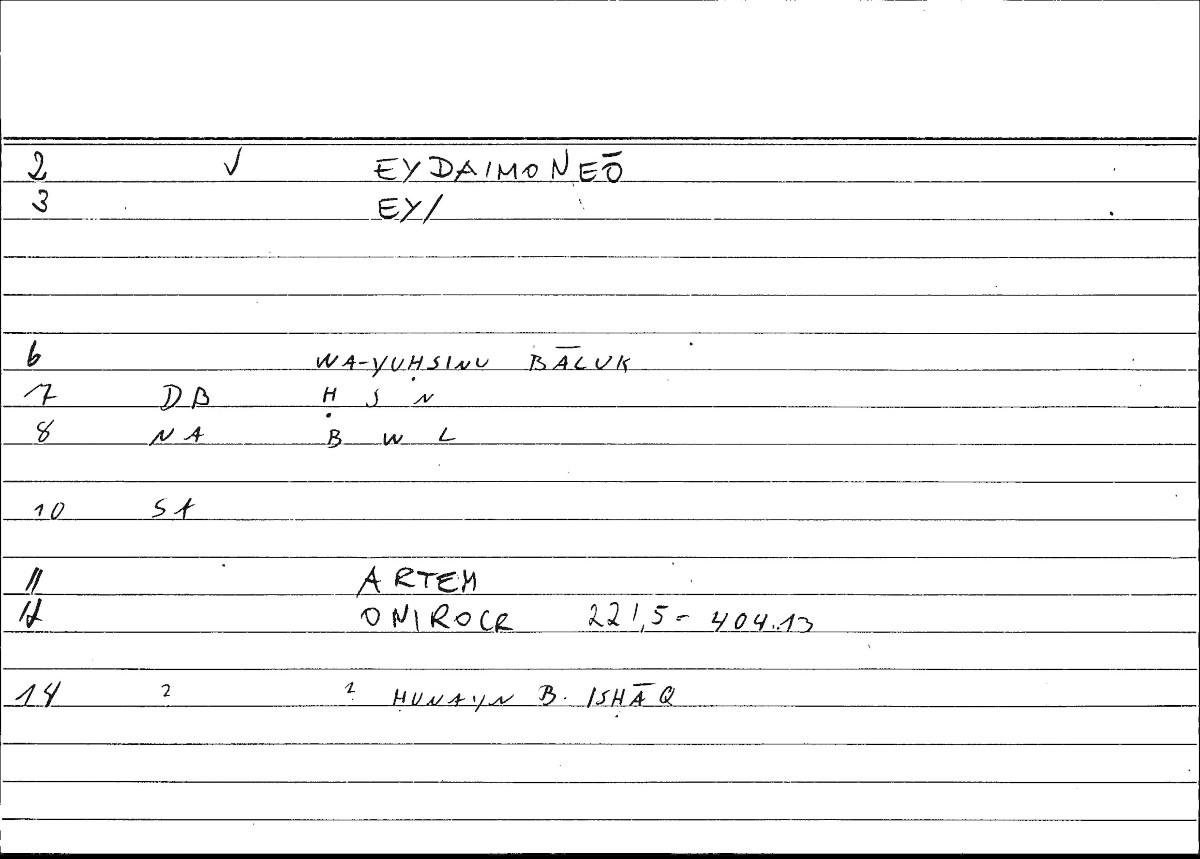 2 √ EYDAIMONEŌ
3 EY/
6 WA-YUḤSINU BĀLUK
7 DB Ḥ S N
8 NA B W L
10 SA
11 ARTEM
12 ONIROCR 221,5 = 404.13
14 2 1 ḤUNAYN B. ISḤĀQ